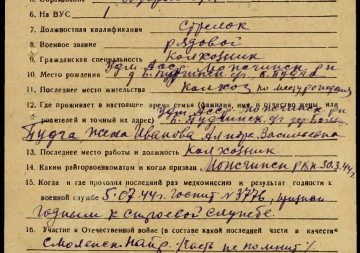 6. На ВУС 1
7. Должностная квалификация стрелок
8. Военное звание рядовой
9. Гражданская специальность колхозник
10. Место рождения Удм. Асср. Можгинск. р-н
11. Последнее место жительства Колхоз по месту рождения
12. Где проживает в настоящее время семья (фамилия, имя, и отчество жены или
родителей и точный их адрес)
Пудга жена Иванова Васильевна
13. Последнее место работы и должность Колхозник
14. Каким райгорвоенкоматом и когда призван Можгинск. рвк. 30.3.44 г.
15. Когда и где проходил последний раз медкомиссию и результат годности к
военной службе 5.07.44 г. Госпит № 3776, признан
годным к строевой службе.
16. Участие в Отечественной войне (в составе какой последней части и в качестве
Смоленск. напр. часть не помнит